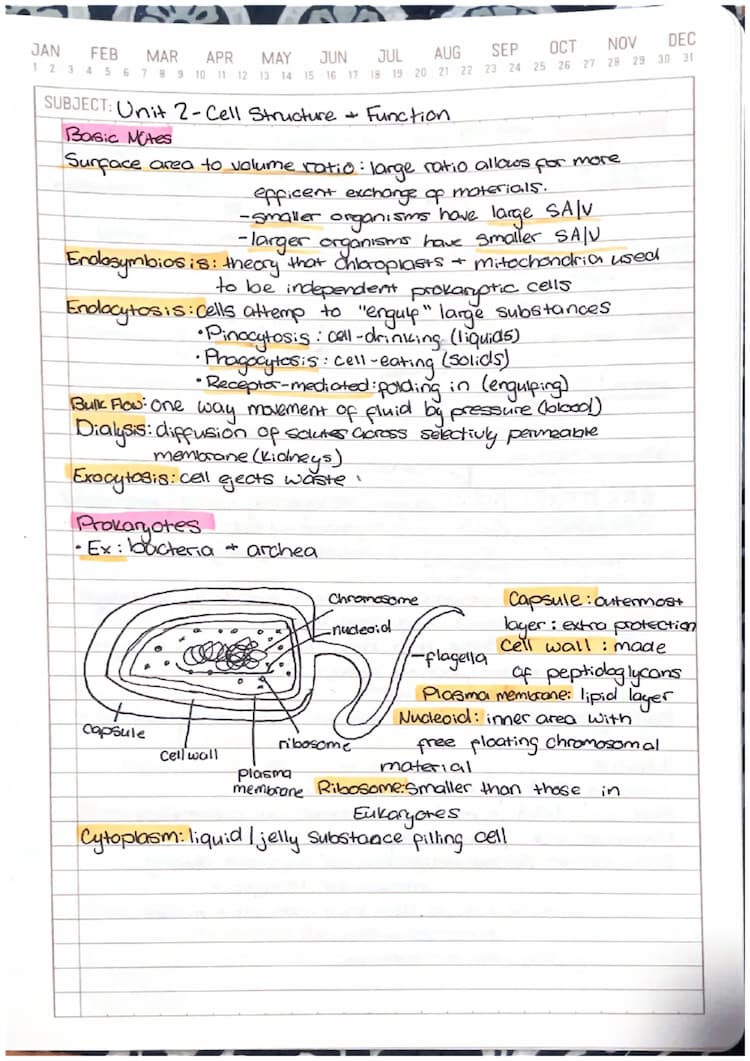 JAN FEB MAR APR MAY JUN JUL AUG SEP OCT NOV DEC
1 2 3 4 5 6 7 8 9 10 11 12 13 14 15 16 17 18 19 20 21 22 23 24 25 26 27 28 29 30 31
SUBJECT: Unit 2 - Cell Structure + Function
Basic Notes
Surface area to volume ratio: large ratio allows for more
efficent exchange of materials.
- smaller organisms have large SA/V
- larger organisms have smaller SA/V
Endosymbiosis: theory that chloroplasts + mitochondria used
to be independent prokaryotic cells
Endocytosis: cells attemp to "engulf" large substances
• Pinocytosis: cell-drinking (liquids)
• Phagocytosis: cell-eating (solids)
• Receptor-mediated: folding in (engulfing)
Bulk Flow: one way movement of fluid by pressure (blood)
Dialysis: diffusion of solutes across selectivly permeable
membrane (kidneys)
Exocytosis: cell ejects waste
Prokaryotes
• Ex: bacteria + archea
chromosome
nucleoid
flagella
capsule
cell wall
plasma
membrane
ribosome
Capsule: outermost
layer: extra protection
Cell wall: made
of peptidoglycans
Plasma membrane: lipid layer
Nucleoid: inner area with
free floating chromosomal
material
Ribosome: smaller than those in
Eukaryotes
Cytoplasm: liquid / jelly substance filling cell